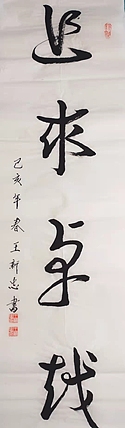 追求卓越
己亥年春王新志书